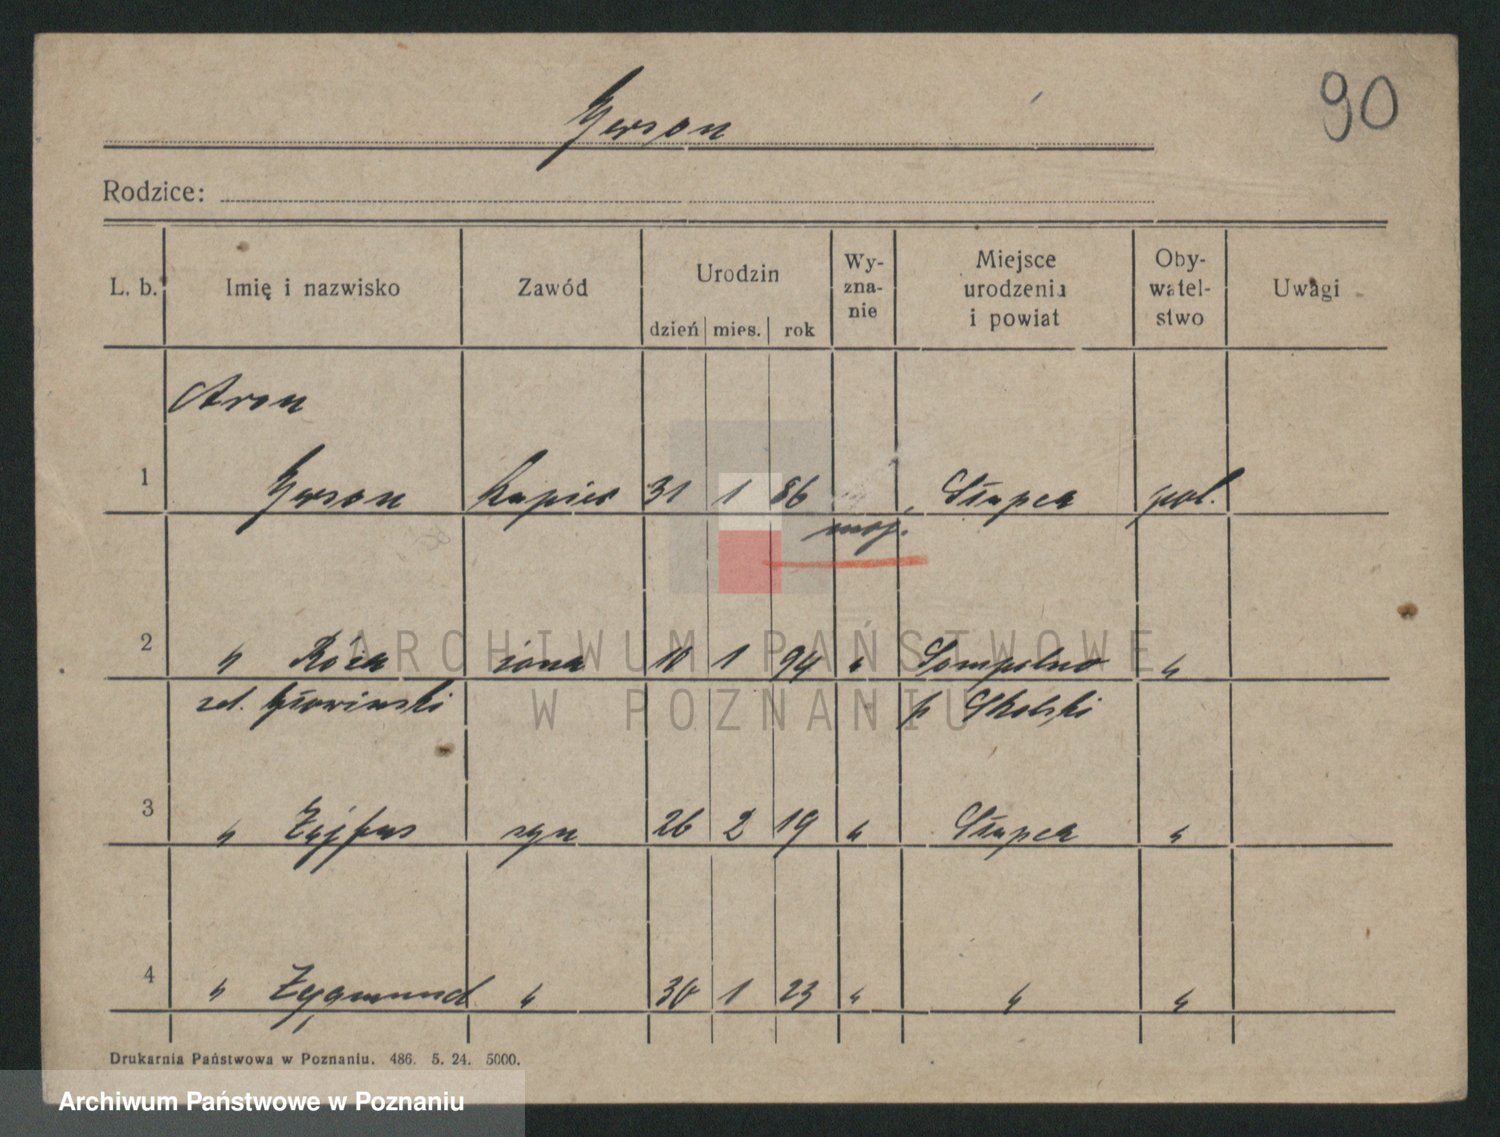 90
Gerson
Rodzice:
L. b. Imię i nazwisko Zawód Urodzin dzień mies. rok Wy-zna-nie Miejsce urodzenia i powiat Oby-watel-stwo Uwagi
Aron
1 Gerson kupiec 31 1 86 Słupca pol.
moj.
2 " Róża żona 10 1 94 " Sompolno "
zd. Głowinski p Kolski
3 " syn 26 2 19 " Słupca "
4 " Zygmund " 30 1 23 " " "
Drukarnia Państwowa w Poznaniu. 486. 5. 24. 5000.
ARCHIWUM PAŃSTWOWE
W POZNANIU
Archiwum Państwowe w Poznaniu